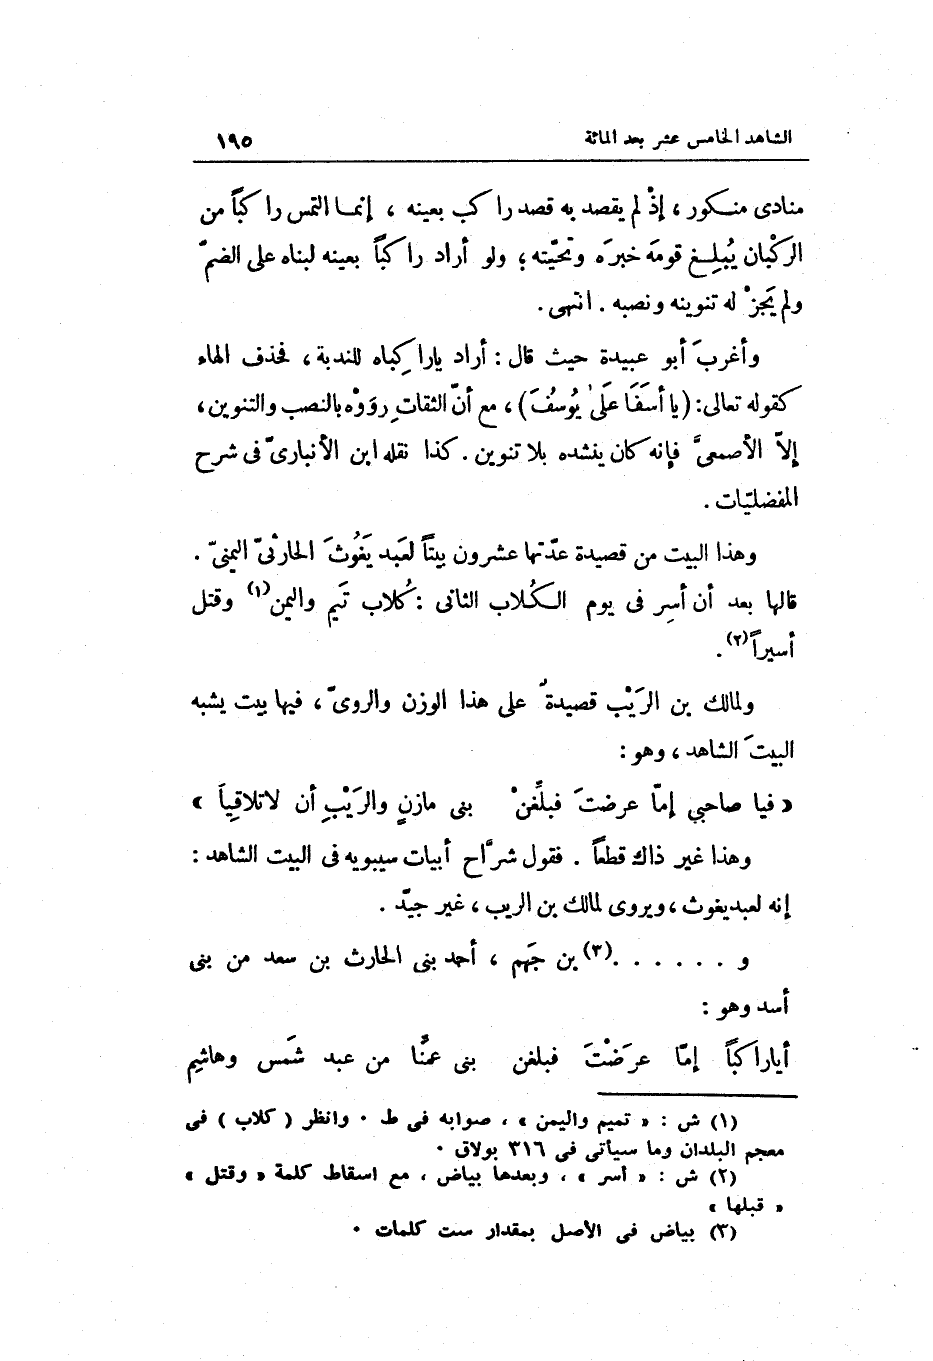 الشاهد الخامس عشر بعد المائة ١٩٥
منادى منكور، إذْ لم يقصد به قصد راكب بعينه، إنما التمس راكباً من
الركْبان يُبلِغ قومَه خبرَه وتحيّته؛ ولو أراد راكباً بعينه لبناه على الضمّ
ولم يَجزْ له تنوينه ونصبه. انتهى.
وأغربَ أبو عبيدة حيث قال: أراد ياراكِباه للندبة، فحذف الهاء
كقوله تعالى: (يا أسَفَا عَلَىٰ يُوسُفَ)، مع أنّ الثقاتِ رووْه بالنصب والتنوين،
إلاّ الأصمعىَّ فإنه كان ينشده بلا تنوين. كذا نقله ابن الأنبارىّ فى شرح
المفضليّات.
وهذا البيت من قصيدة عدّتها عشرون بيتاً لعَبد يَغُوثَ الحارثىّ اليمنىّ.
قالها بعد أن أسِر فى يوم الكُلاب الثانى: كُلاب تَيم واليمن(١) وقتل
أسيراً(٢).
ولمالك بن الرَيْب قصيدةٌ على هذا الوزن والروىّ، فيها بيت يشبه
البيتَ الشاهد، وهو:
« فيا صاحبي إمّا عرضتَ فبلِّغنْ بنى مازنٍ والرَيْبِ أن لاتلاقِياَ »
وهذا غير ذاك قطعاً. فقول شرَّاح أبيات سيبويه فى البيت الشاهد:
إنه لعبد يغوث، ويروى لمالك بن الريب، غير جيّد.
و . . . . . .(٣) بن جَهم، أحد بنى الحارث بن سعد من بنى
أسد وهو:
أياراَكباً إمّا عرَضْتَ فبلغن بنى عمنَّا من عبد شَمس وهاشِمِ
(١) ش: « تميم واليمن »، صوابه فى ط. وانظر (كلاب) فى
معجم البلدان وما سيأتى فى ٣١٦ بولاق.
(٢) ش: « أسر »، وبعدها بياض، مع اسقاط كلمة « وقتل »
« قبلها »
(٣) بياض فى الأصل بمقدار ست كلمات.